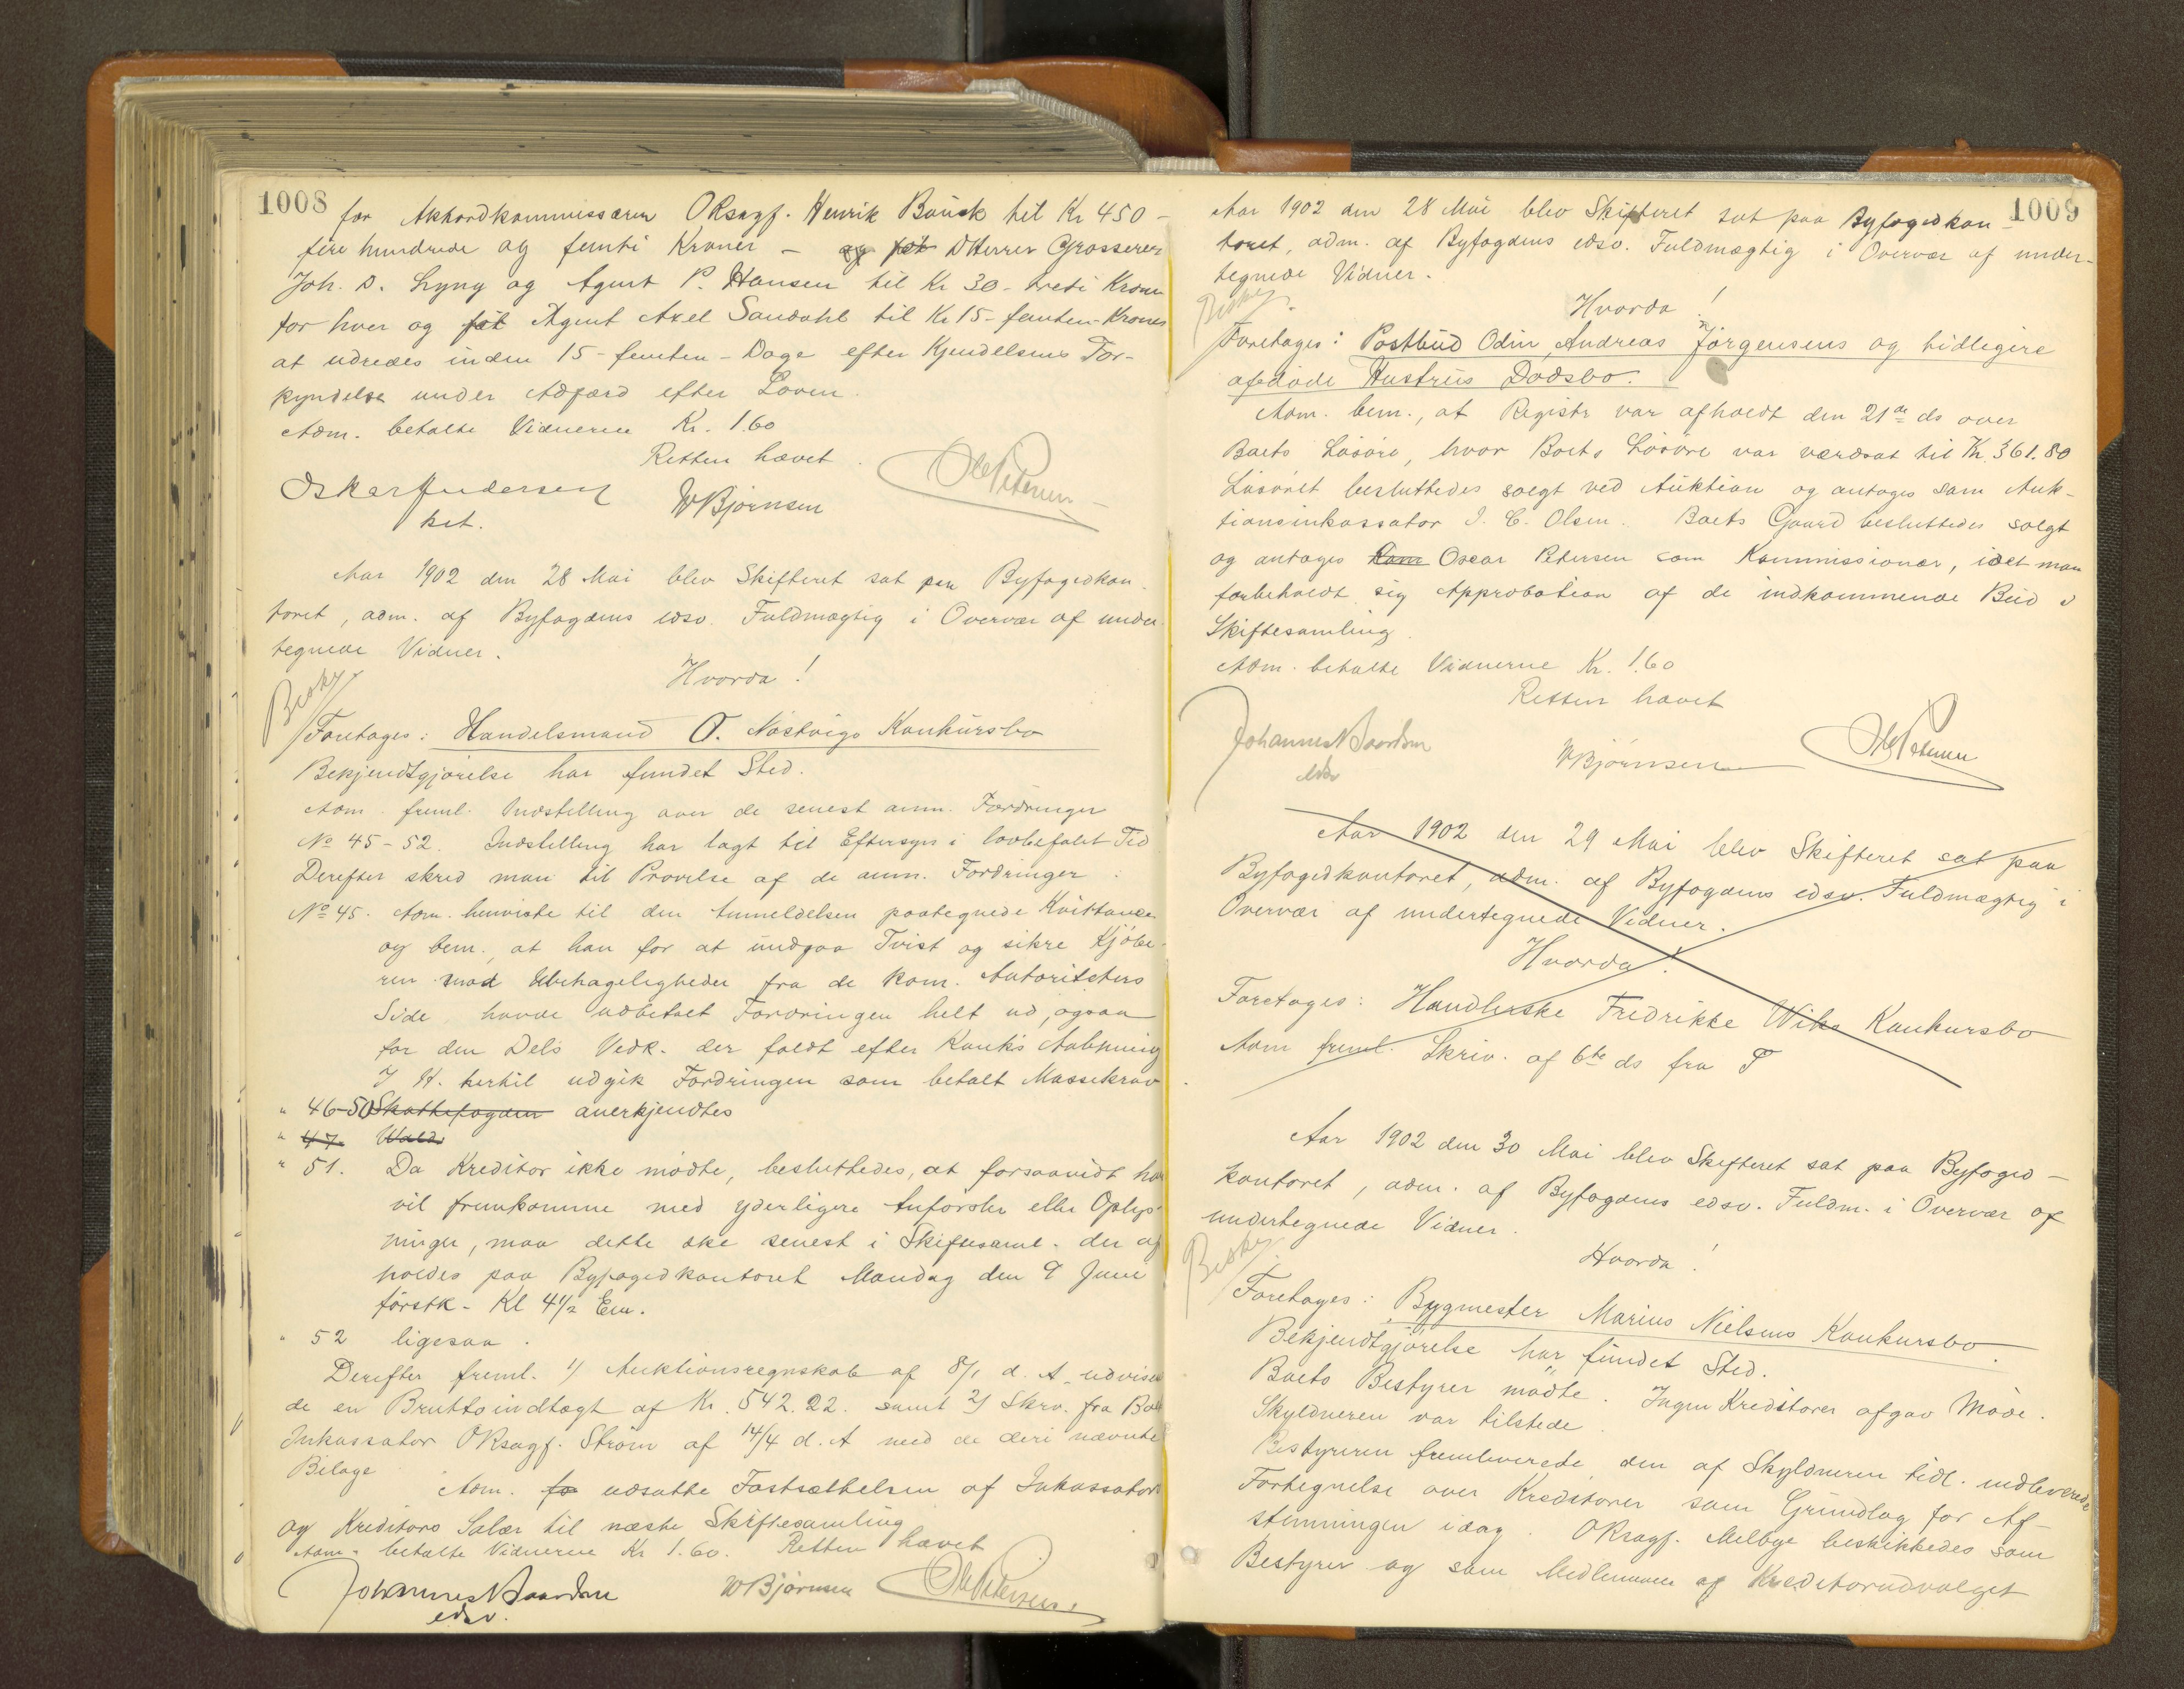 1008
for Akkordkommissæren ORsagf. Henrik Bauck til Kr 450 -
fire hundrede og femti Kroner - og før DHerrer Grosserer
Joh. D. Lyng og Agent P. Hansen til Kr 30 - treti Kroner
for hver og for Agent Axel Sandahl til Kr 15 - femten - Kroner
at udredes inden 15 - femten - Dage efter Kjendelsens For-
kyndelse under Adfærd efter Loven.
Adm. betalte Vidnerne Kr. 1.60
Retten hævet.
Oskar Andersen
kst.
W Bjørnsen
Ole Petersen
Aar 1902 den 28 Mai blev Skifteret sat paa Byfogedkon-
toret, adm. af Byfogdens edsv. Fuldmægtig i Overvær af under-
tegnede Vidner.
Hvorda!
Besky
Foretages: Handelsmand O. Næstvigs Konkursbo
Bekjendtgjørelse har fundet Sted.
Adm. freml. Indstilling over de senest anm. Fordringer
No 45-52. Indstilling har lagt til Eftersyn i lovbefalet Tid
Derefter skred man til Prøvelse af de anm. Fordringer:
No 45. Adm. henviste til den Anmeldelsen paategnede Kvittance
og bem., at han for at undgaa Tvist og sikre Kjøbe-
ren mod Ubehageligheder fra de kom. Autoriteters
Side, havde udbetalt Fordringen helt ud, ogsaa
for den Dels Vedk. der faldt efter Konk's Aabning
I H. hertil udgik Fordringen som betalt Massekrav.
" 46-50 Skattefogden anerkjendtes
" 47. Wald
" 51. Da Kreditor ikke mødte, besluttedes, at forsaavidt han
vil fremkomme med yderligere Anførsler eller Oplys-
ninger, maa dette ske senest i Skiftesaml. der af
holdes paa Byfogedkontoret Mandag den 9 Juni
førstk. Kl 4½ Em.
" 52 ligesaa.
Derefter freml. 1) Auktionsregnskab af 8/1 d. A. udvisen
de en Bruttoindtægt af Kr. 542.22. samt 2) Skrv. fra Boets
Inkassator ORsagf. Strøm af 14/4 d. A med de deri nævnte
Bilage
Adm. fo udsatte Fastsættelsen af Inkassators
og Kreditors Salær til næste Skiftesamling
Adm. betalte Vidnerne Kr 1.60. Retten hævet
Johannes Naardam
edsv.
W Bjørnsen
Ole Petersen
1009
Aar 1902 den 28 Mai blev Skifteret sat paa Byfogedkon-
toret, adm. af Byfogdens edsv. Fuldmægtig i Overvær af under-
tegnede Vidner.
Hvorda!
Besky
Foretages: Postbud Odin Andreas Jørgensens og tidligere
afdøde Hustrus Dødsbo.
Adm. bem., at Registr var afholdt den 21de ds over
Boets Løsøre, hvor Boets Løsøre var værdsat til Kr. 361.80
Løsøret besluttedes solgt ved Auktion og antoges som Auk-
tionsinkassator I. C. Olsen. Boets Gaard besluttedes solgt
og antoges som Oscar Petersen som Kommissionær, idet man
forbeholdt sig Approbation af de indkommende Bud i
Skiftesamling.
Adm. betalte Vidnerne Kr. 1.60
Retten hævet
Johannes Naardam
edsv
W Bjørnsen
Ole Petersen
Aar 1902 den 29 Mai blev Skifteret sat paa
Byfogedkontoret, adm. af Byfogdens edsv. Fuldmægtig i
Overvær af undertegnede Vidner.
Hvorda!
Foretages: Handlerske Fredrikke Wiks Konkursbo
Adm freml. Skriv. af 6te ds fra P
Aar 1902 den 30 Mai blev Skifteret sat paa Byfoged-
kontoret, adm. af Byfogdens edsv. Fuldm. i Overvær af
undertegnede Vidner.
Hvorda!
Besky
Foretages: Bygmester Marius Nielsens Konkursbo
Bekjendtgjørelse har fundet Sted.
Boets Bestyrer mødte. Ingen Kreditorer afgav Møde.
Skyldneren var tilstede.
Bestyreren fremleverede den af Skyldneren tidl. indleverede
Fortegnelse over Kreditorer som Grundlag for Af-
stemningen idag. ORsagf. Melbye beskikkedes som
Bestyrer og som Medlemmer af Kreditorudvalget